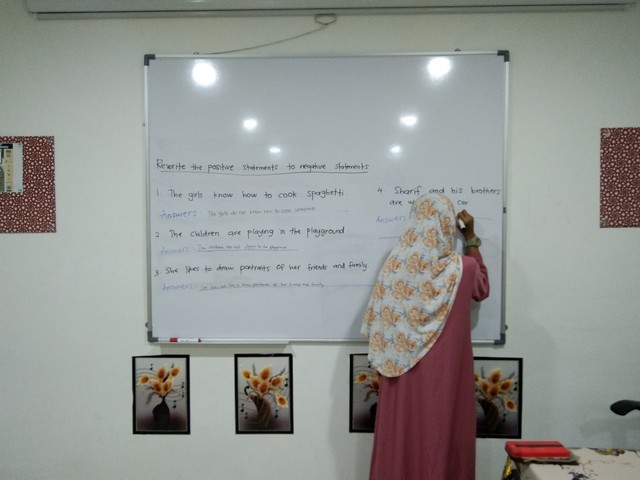 Rewrite the positive statements to negative statements
1. The girls know how to cook spaghetti
Answers: The girls do not know how to cook spaghetti
2. The children are playing in the playground
Answers: The children are not playing in the playground
3. She likes to draw portraits of her friends and family
Answers: She does not like to draw portraits of her friends and family
4. Sharif and his brothers
are car
Answers